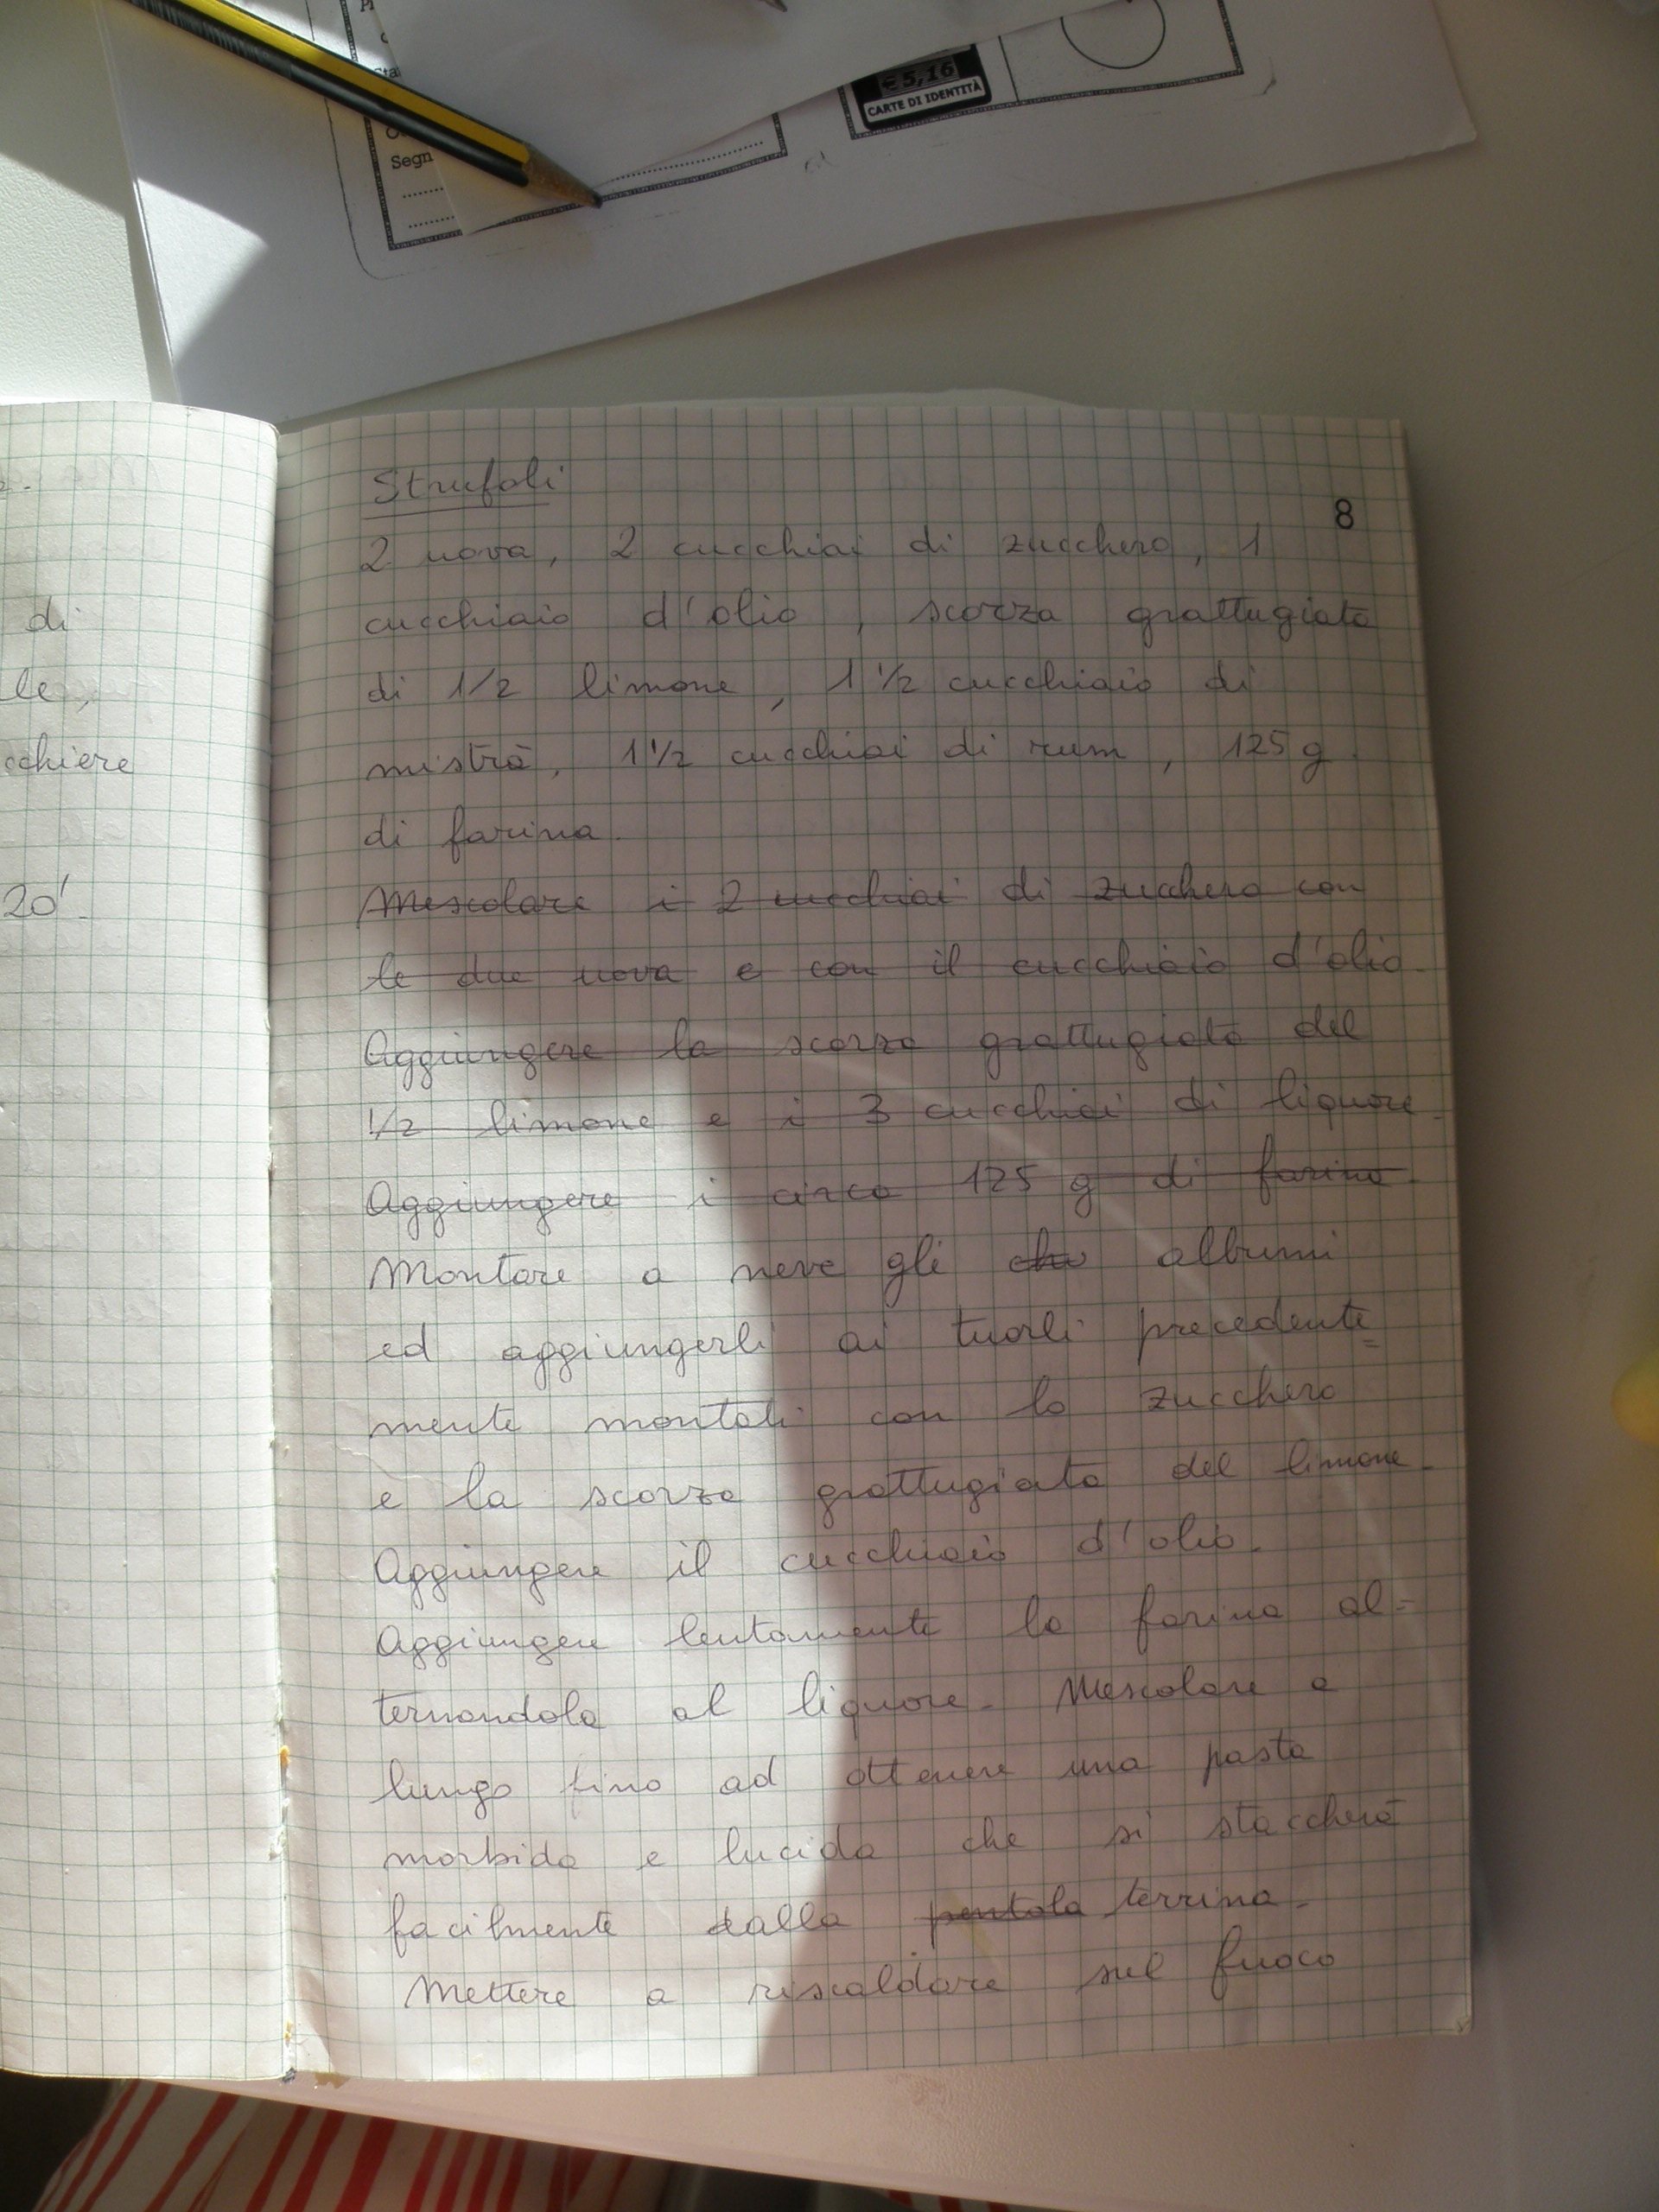 € 5,16
CARTE DI IDENTITÀ
Segn
di
le,
cchiere
20'.
Strufoli
8
2 uova, 2 cucchiai di zucchero, 1
cucchiaio d'olio, scorza grattugiata
di 1/2 limone, 1 1/2 cucchiaio di
mistrà, 1 1/2 cucchiai di rum, 125 g
di farina.
Mescolare i 2 cucchiai di zucchero con
le due uova e con il cucchiaio d'olio.
Aggiungere la scorza grattugiata del
1/2 limone e i 3 cucchiai di liquore.
Aggiungere i circa 125 g di farina.
Montare a neve gli albumi
ed aggiungerli ai tuorli precedente=
mente montati con lo zucchero
e la scorza grattugiata del limone.
Aggiungere il cucchiaio d'olio.
Aggiungere lentamente la farina al=
ternandola al liquore. Mescolare a
lungo fino ad ottenere una pasta
morbida e lucida che si staccherà
facilmente dalla pentola terrina.
Mettere a riscaldare sul fuoco